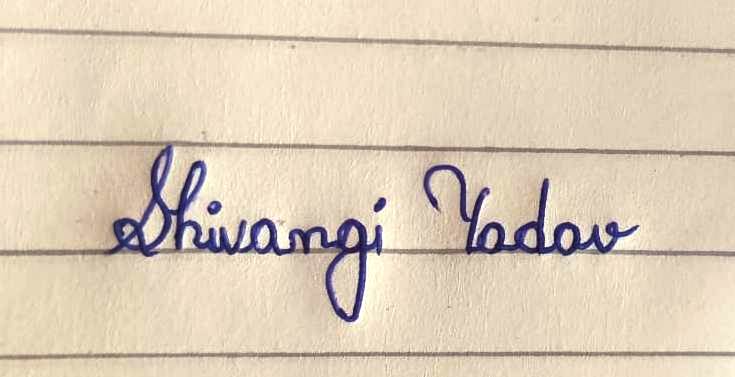 Shivangi Yadav